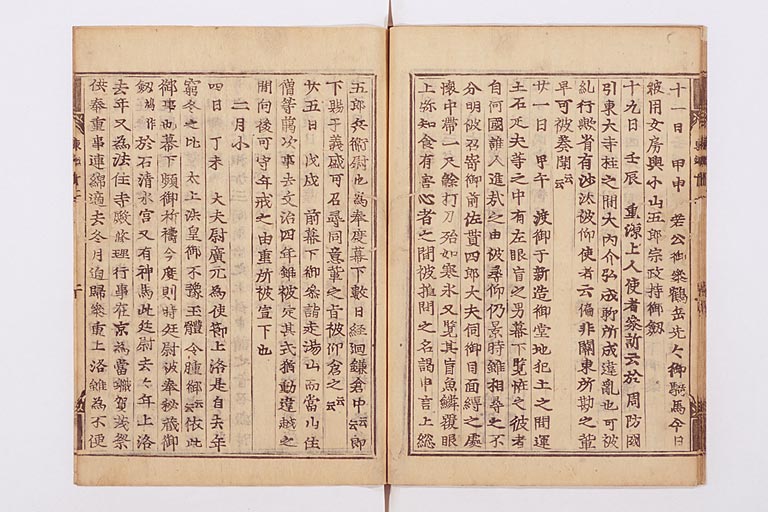 十一日 甲申 若公御參鶴岳先々御騎馬今日
被用女房輿小山五郎宗政持御劔
十九日 壬辰 重源上人使者參訴云於周防國
引東大寺柱之間大内介弘成動所成違亂也可被
糺行歟者有沙汰被仰使者云偏非關東所勘之輩
早可被奏聞云云
廿一日 甲午 渡御于新造御堂地犯土之間運
土石疋夫等之中有左眼盲之男幕下覽恠之彼者
自何國誰人進哉之由被尋仰仍景時雖相尋之不
分明被召寄御前佐貫四郎大夫伺御目面縛之處
懷中帶一尺餘打刀殆如寒氷又覽其盲魚鱗覆眼
上弥知食有害心者之間被推問之名謁申言上總
五郎兵衛尉也爲奉度幕下數日經廻鎌倉中云云即
下賜于義盛可召尋同意輩之旨被仰含之云云
廿五日 戊戌 前幕下御參詣走湯山而當山住
僧等 事去文治四年雖被定其式猶動違越之
間向後可守年戒之由重所被宣下也
二月小
四日 丁未 大夫尉廣元為使節上洛是自去年
窮冬之比 太上法皇御不豫玉體令腫御云云依此
御事也幕下頻御祈禱今度則時廷尉被奉秘藏御
劔鳩作於石清水宮又有神馬此廷尉去々年上洛
去年又為法住寺殿修理行事在京為當職賀茂祭
供奉重事連綿適去冬月迫歸參重上洛雖為不便